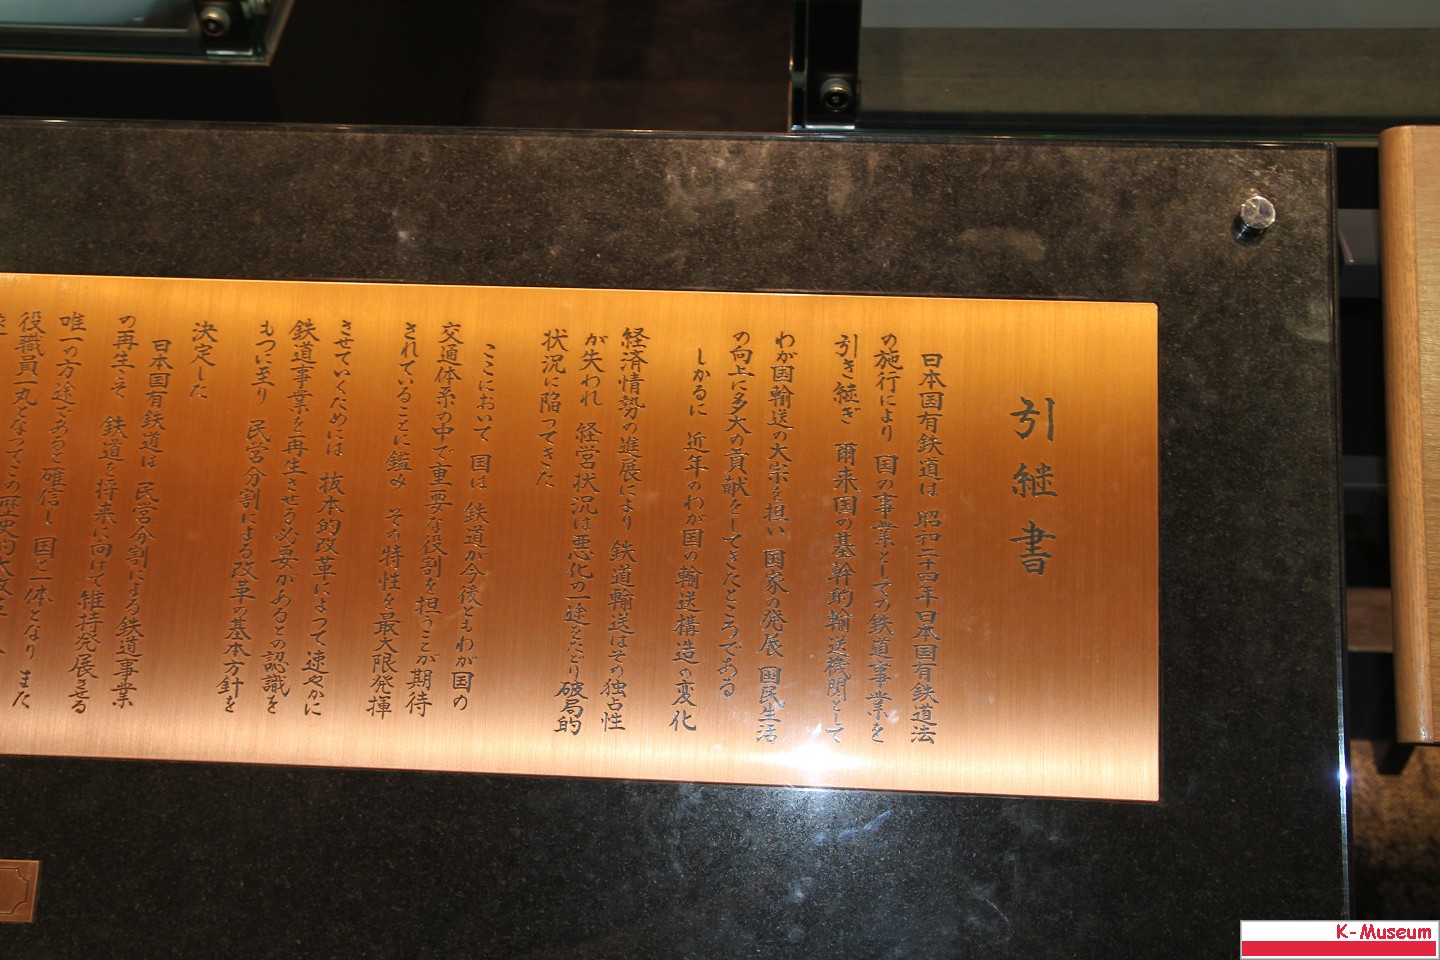 引継書
日本国有鉄道は 昭和二十四年日本国有鉄道法
の施行により 国の事業としての鉄道事業を
引き継ぎ 爾来国の基幹的輸送機関として
わが国輸送の大宗を担い 国家の発展 国民生活
の向上に多大の貢献をしてきたところである
しかるに 近年のわが国の輸送構造の変化
経済情勢の進展により 鉄道輸送はその独占性
が失われ 経営状況は悪化の一途をたどり 破局的
状況に陥ってきた
ここにおいて 国は 鉄道が今後ともわが国の
交通体系の中で重要な役割を担うことが期待
されていることに鑑み その特性を最大限発揮
させていくためには 抜本的改革によって速やかに
鉄道事業を再生させる必要があるとの認識を
もつに至り 民営分割による改革の基本方針を
決定した
日本国有鉄道は 民営分割による鉄道事業
の再生こそ 鉄道を将来に向けて維持発展させる
唯一の方途であると確信し 国と一体となり また
役職員一丸となってこの歴史的大改革
K-Museum